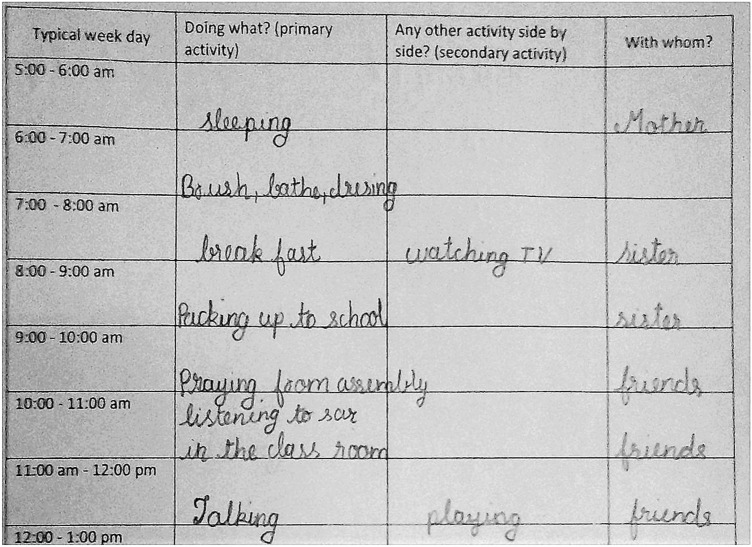 Typical week day
Doing what? (primary activity)
Any other activity side by side? (secondary activity)
With whom?
5:00 - 6:00 am
sleeping
Mother
6:00 - 7:00 am
Brush, bathe, dresing
7:00 - 8:00 am
break fast
watching TV
sister
8:00 - 9:00 am
Packing up to school
sister
9:00 - 10:00 am
Praying from assembly
friends
10:00 - 11:00 am
listening to sar
in the class room
friends
11:00 am - 12:00 pm
Talking
playing
friends
12:00 - 1:00 pm